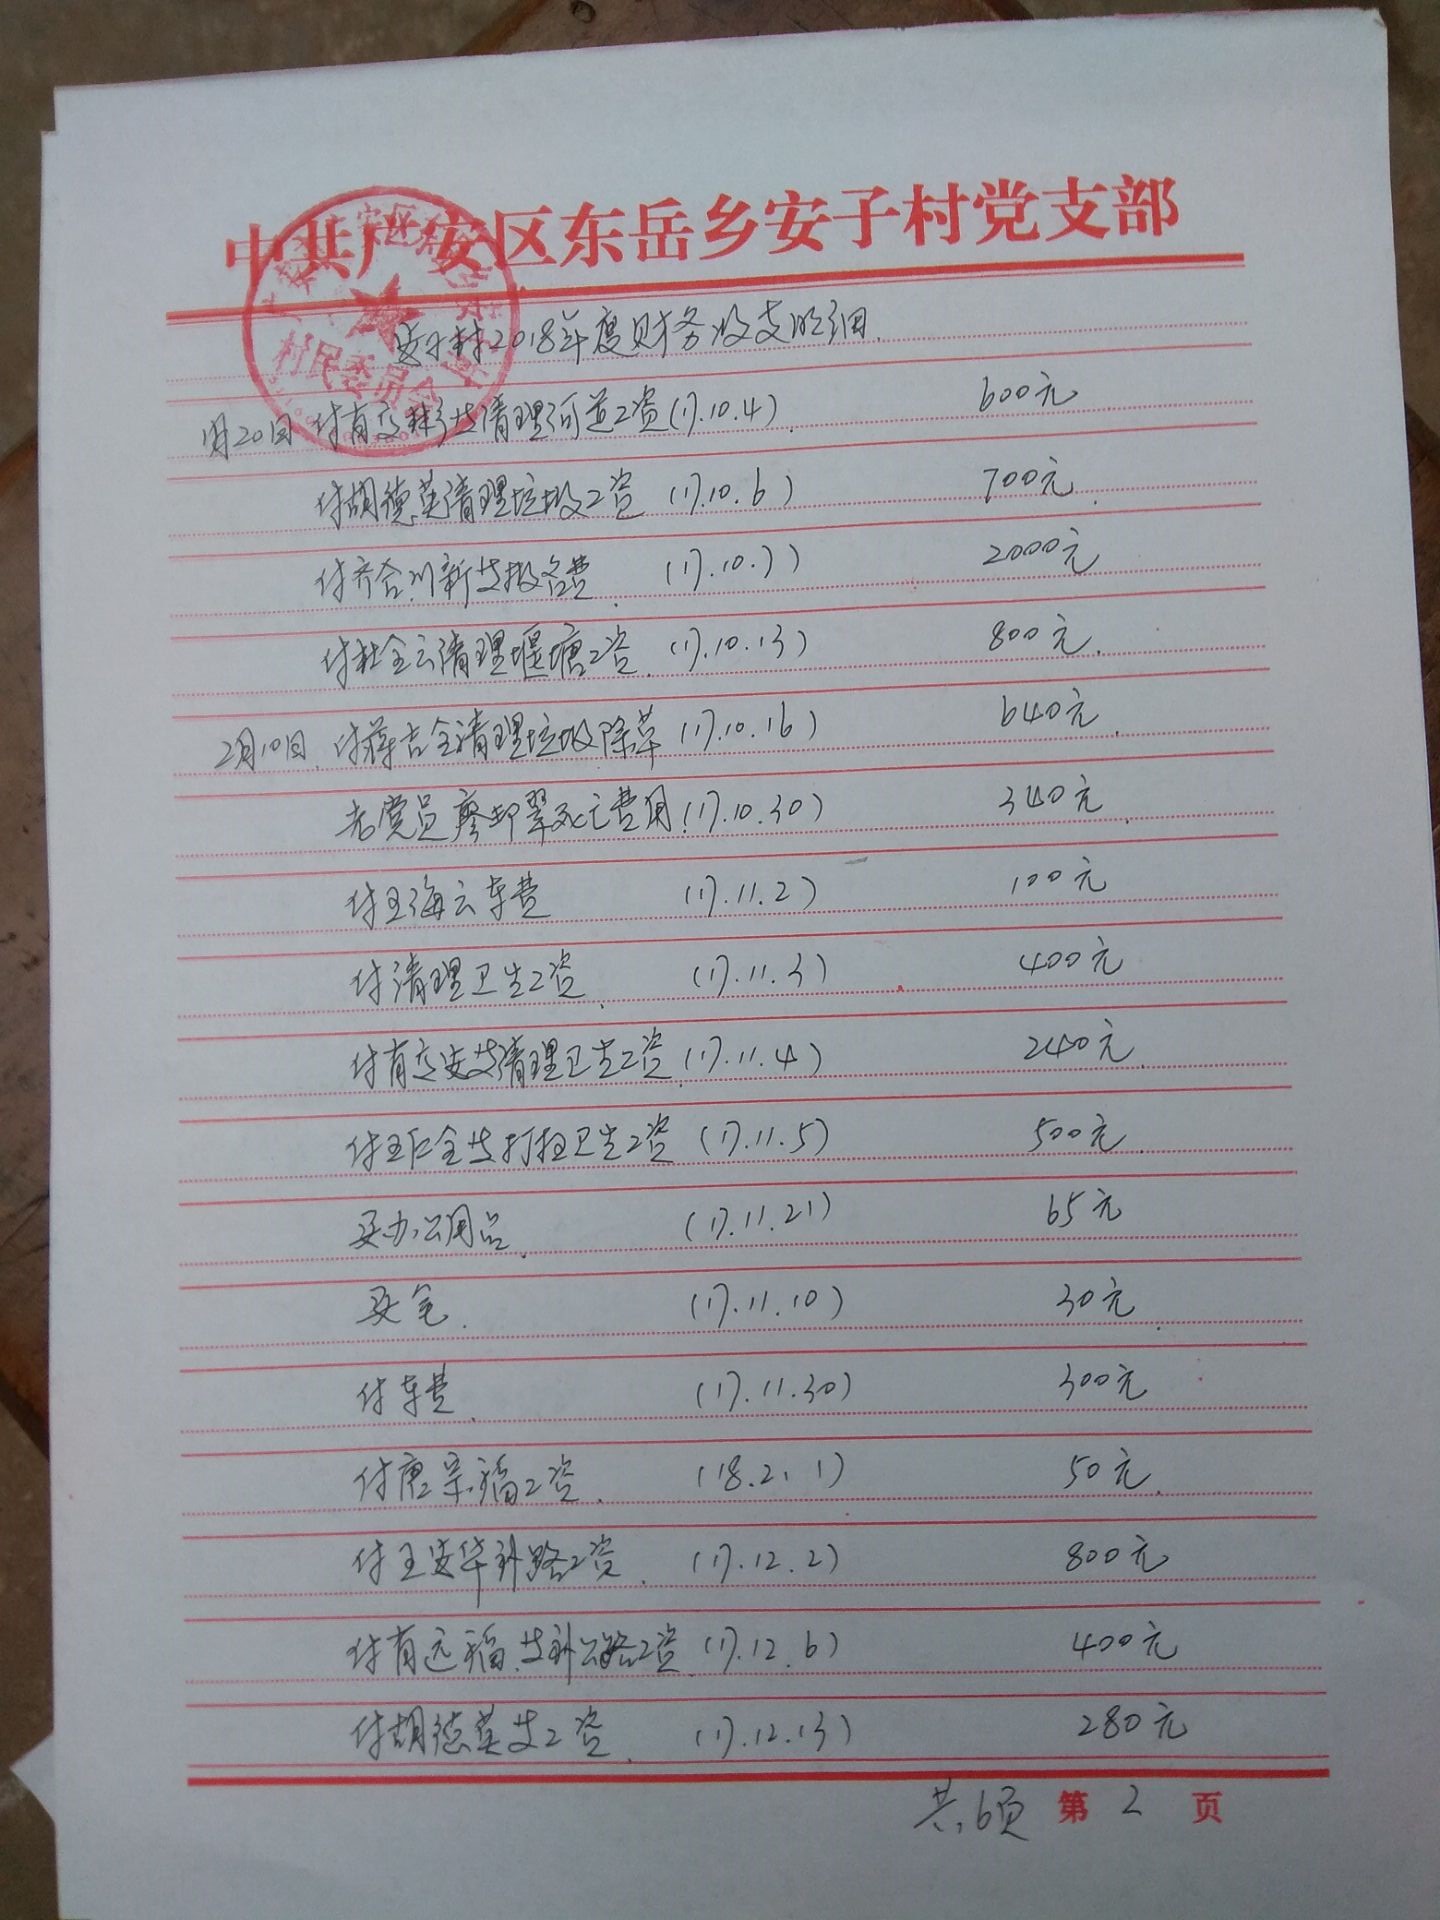 中共广安区东岳乡安子村党支部
村民委员会
安子村2018年度财务收支明细
1月20日 付肖交林等清理河道工资(17.10.4) 600元
付胡德英清理垃圾工资 (17.10.6) 700元
付齐合川新支报名费 (17.10.7) 2000元
付杜全云清理堰塘工资 (17.10.13) 800元
2月10日 付蒋吉全清理垃圾除草 (17.10.16) 640元
老党员廖邦翠死亡费用(17.10.30) 340元
付王海云车费 (17.11.2) 100元
付清理卫生工资 (17.11.3) 400元
付肖交安等清理卫生工资(17.11.4) 240元
付王仁全等打扫卫生工资 (17.11.5) 500元
买办公用品 (17.11.21) 65元
买 (17.11.10) 30元
付车费 (17.11.30) 300元
付唐宗福工资 (18.2.1) 50元
付王安华补路工资 (17.12.2) 800元
付肖远福等补公路工资 (17.12.6) 400元
付胡德英等工资 (17.12.13) 280元
共6页 第 2 页